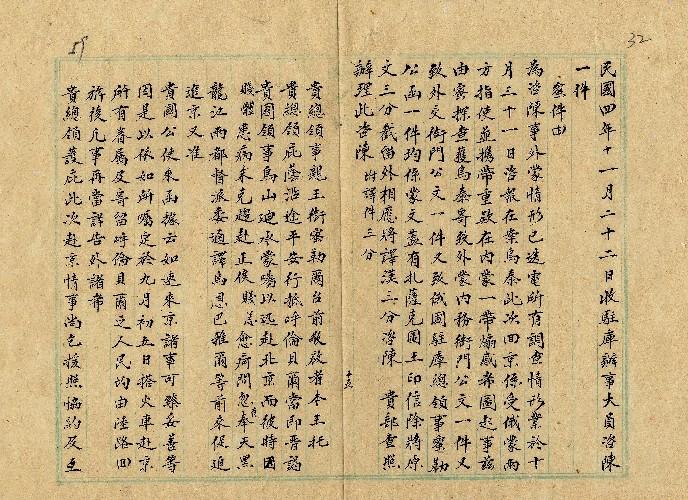 32
民國四年十一月二十二日收駐庫辦事大員咨陳
一件
密件
為咨陳事外蒙情形已迭電所有調查情形業於十
月三十一日咨報在案烏泰此次回京係受俄蒙兩
方指使並攜帶重款在內蒙一帶煽惑希圖起事茲
由密探查獲烏泰寄致外蒙內務衙門公文一件又
致外交衙門公文一件又致俄國駐庫總領事密勒
公函一件均係蒙文蓋有扎薩克圖王印信除將原
文三分截留外相應將譯漢三分咨陳 貴部查照
辦理此咨陳 附譯件三分
十五
貴總領事親王銜密勒爾台前敬啟者本王托
貴總領庇蔭沿途平安行抵呼倫貝爾當即晉謁
貴國領事烏山迪承蒙囑以迅赴北京而彼時因
賤體患病未克趨赴正俟賤恙愈痾間忽奉天黑
龍江兩都督派委通譯烏恩巴雅爾等前來促迫
進京又准
貴國公使來函據云如速來京諸事可臻妥善等
因是以依如所囑定於九月初五日搭火車赴京
所有眷屬及寄留呼倫貝爾之人民均由陸路回
旗後凡事再當詳告外諸希
貴總領護庇此次赴京情事尚乞援照協約及互